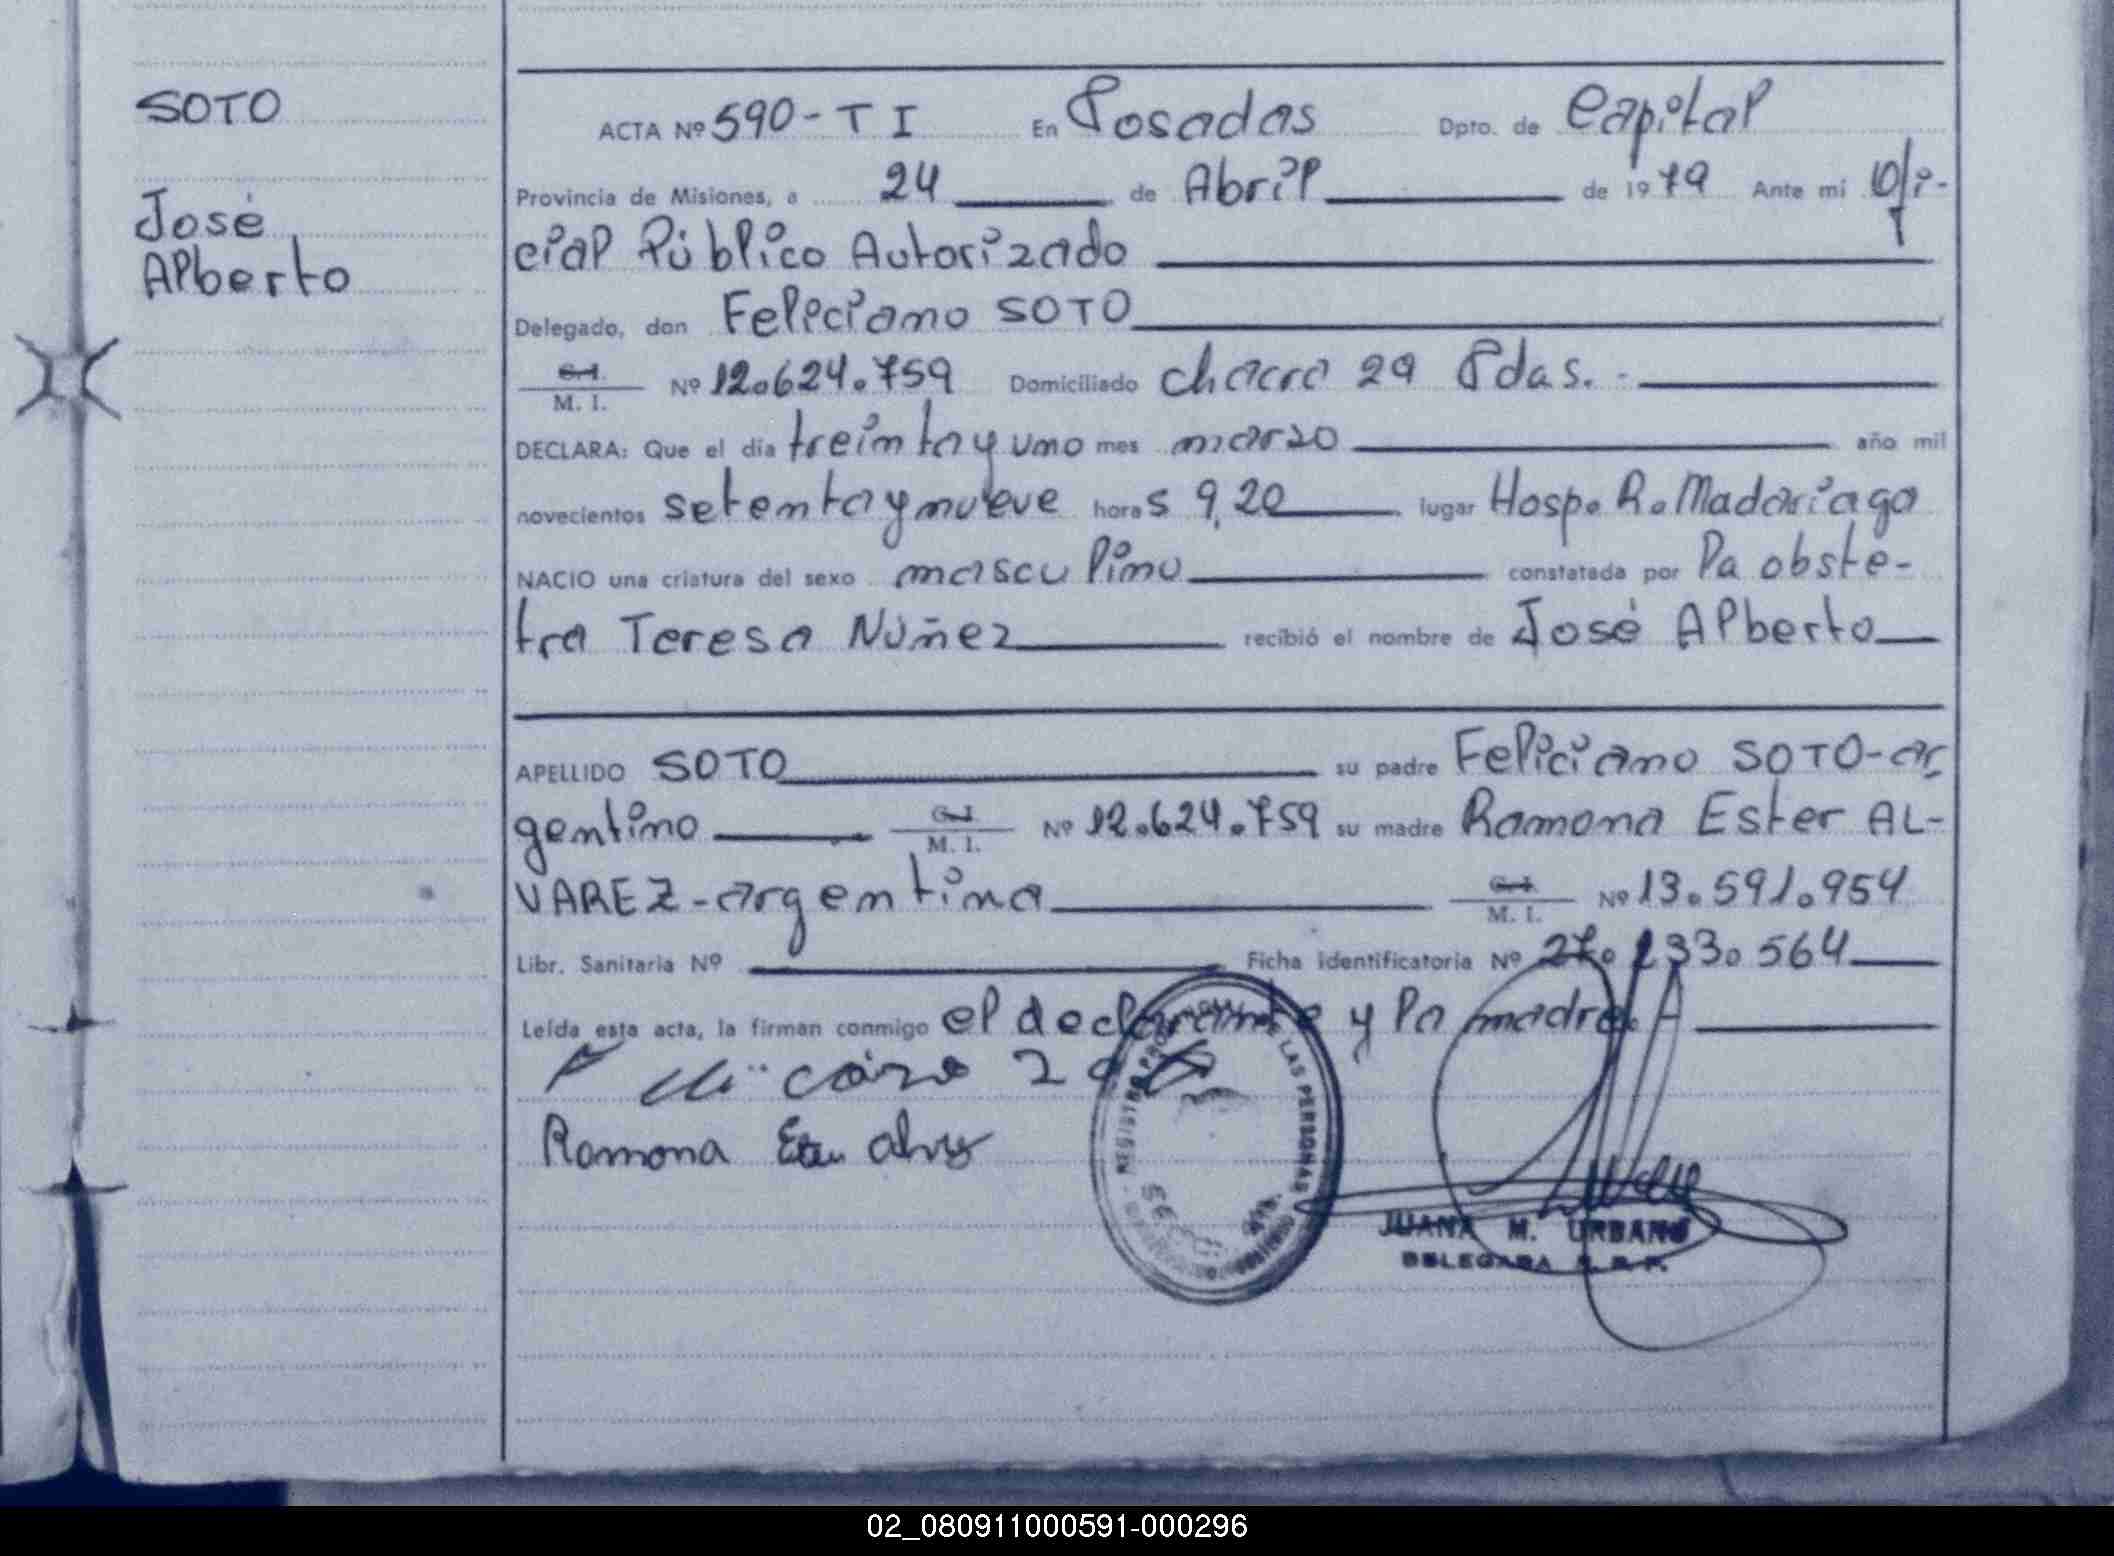 SOTO
José
Alberto
ACTA Nº 590-T I En Posadas Dpto. de Capital
Provincia de Misiones, a 24 de Abril de 1979 Ante mí Ofi-
cial Público Autorizado
Delegado, don Feliciano SOTO
C.I.
M. I. Nº 12.624.759 Domiciliado chacra 29 Pdas.-
DECLARA: Que el día treinta y uno mes marzo año mil
novecientos setenta y nueve horas 9,20 lugar Hosp. R. Madariaga
NACIO una criatura del sexo masculino constatada por la obste-
tra Teresa Núñez recibió el nombre de José Alberto
APELLIDO SOTO su padre Feliciano SOTO-ar
gentino C.I.
M. I. Nº 12.624.759 su madre Ramona Ester AL-
VAREZ-argentina C.I.
M. I. Nº 13.591.954
Libr. Sanitaria Nº Ficha identificatoria Nº 27.233.564
Leída esta acta, la firman conmigo el declarante y la madre.-
Ramona
REGISTRO LAS PERSONAS
JUANA M. URBANO
DELEGADA
02_080911000591-000296